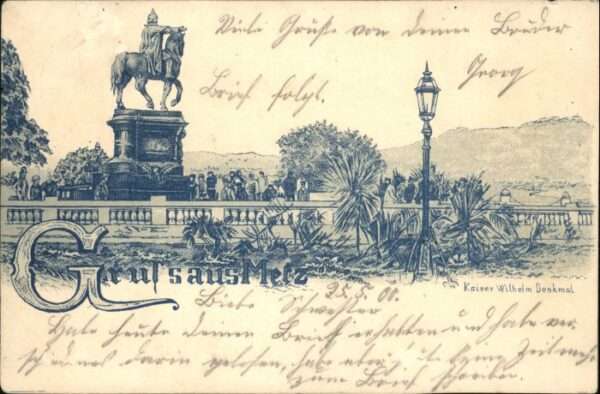 Viele Grüße von deinem Bruder
Georg
Brief folgt.
Gruss aus Metz
Kaiser Wilhelm Denkmal
25.5.00.
Liebe Schwester
Habe heute deinen Brief erhalten und habe ver-
schiedenes darin gelesen, habe aber keine Zeit mehr
zum Brief schreiben.